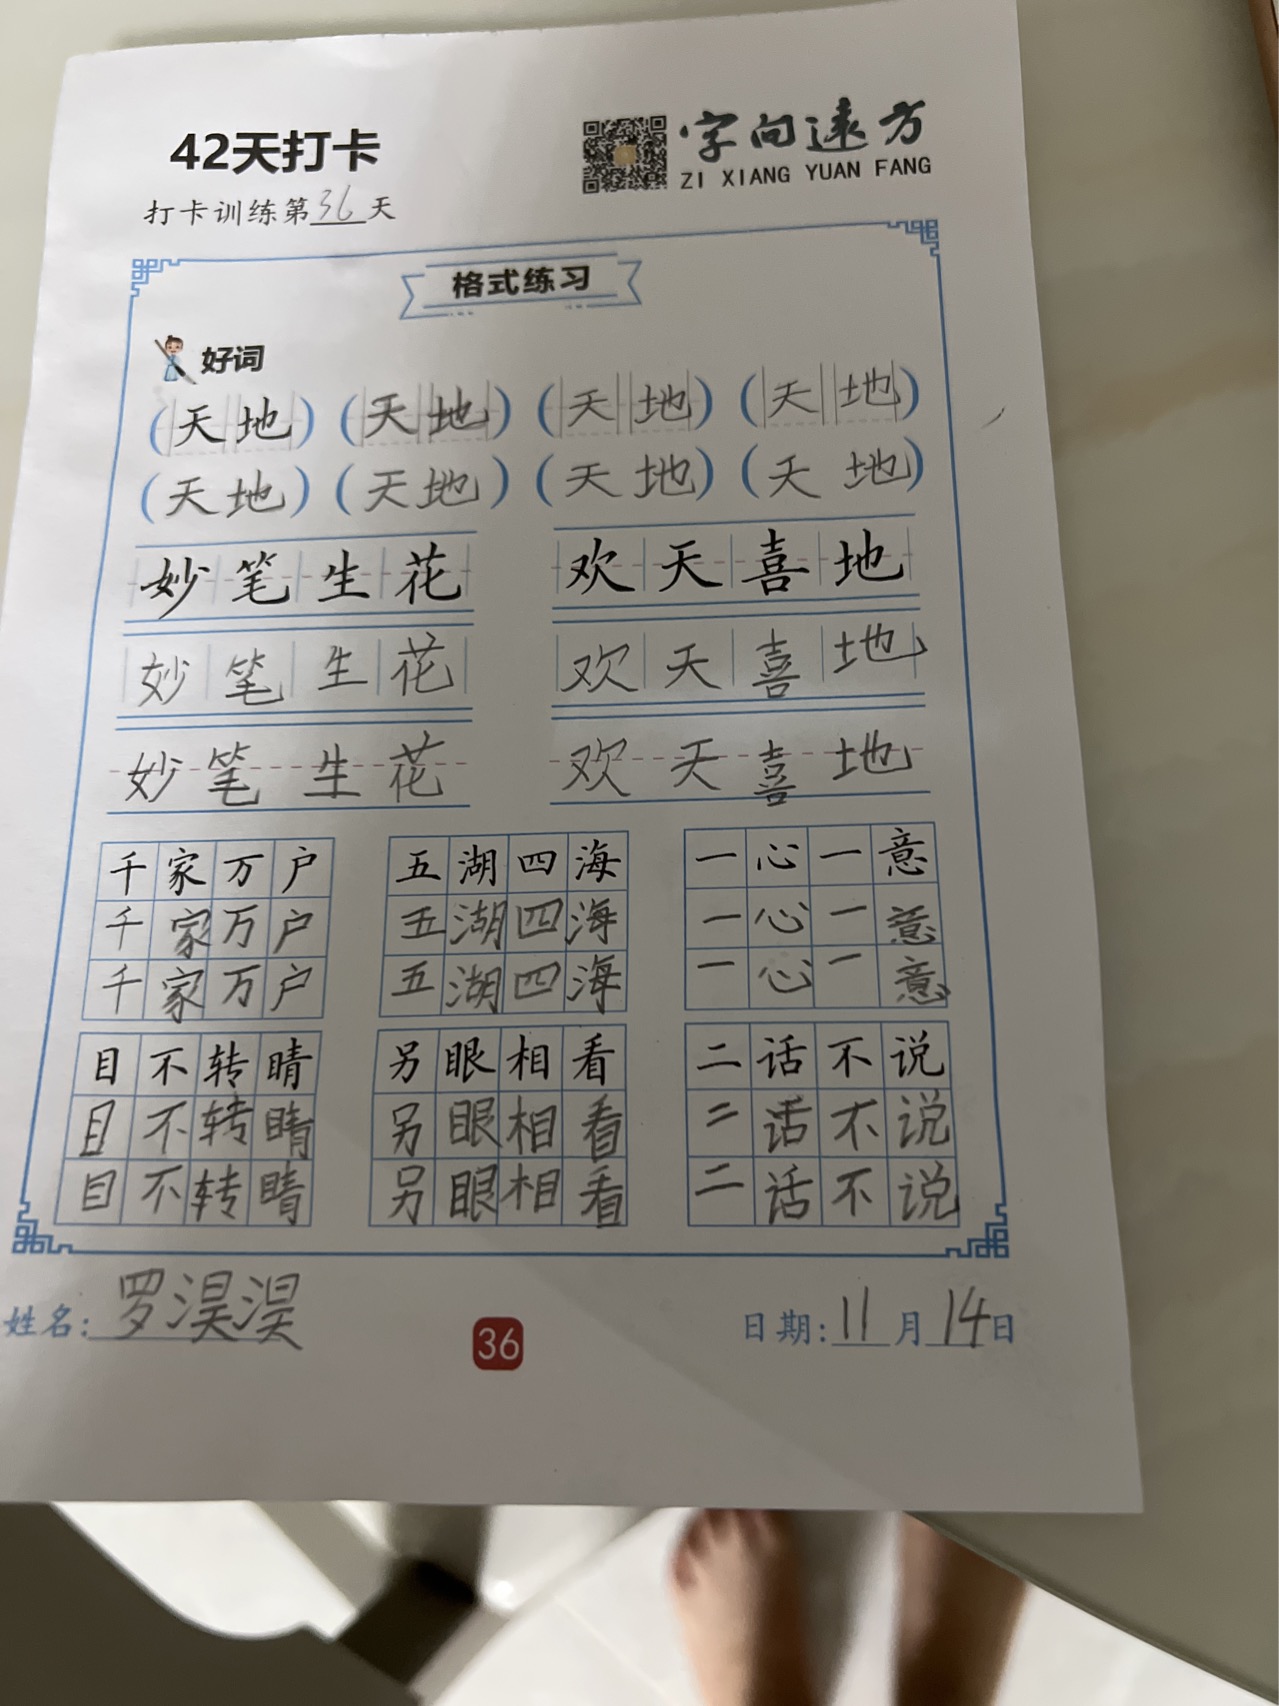 42天打卡
字向远方
ZI XIANG YUAN FANG
打卡训练第36天
格式练习
好词
(天地) (天地) (天地) (天地)
(天地) (天地) (天地) (天地)
妙笔生花 欢天喜地
妙笔生花 欢天喜地
妙笔生花 欢天喜地
千家万户 五湖四海 一心一意
千家万户 五湖四海 一心一意
千家万户 五湖四海 一心一意
目不转睛 另眼相看 二话不说
目不转睛 另眼相看 二话不说
目不转睛 另眼相看 二话不说
姓名:罗淏淏 36 日期:11月14日